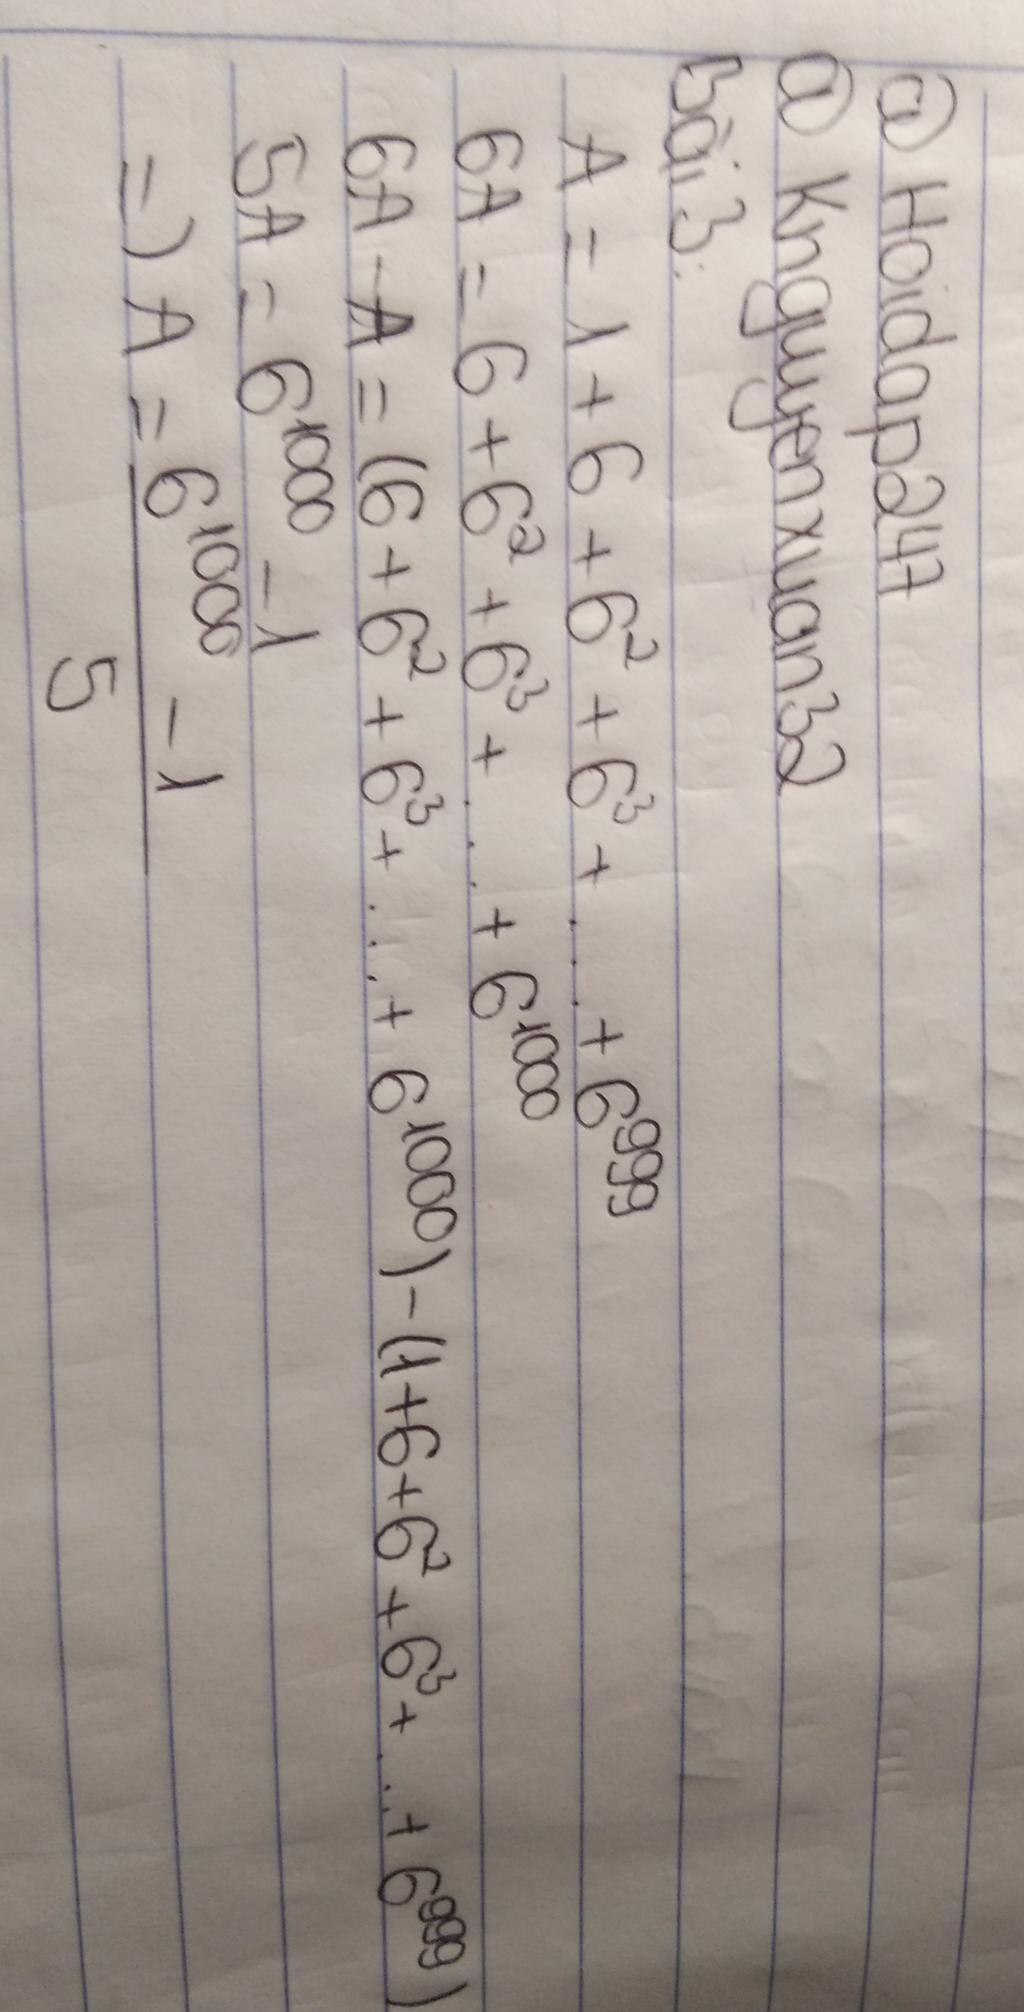 @ Hoidap247
@ Knguyenxuan32
Bài 3:
A = 1 + 6 + 6² + 6³ + .... + 6⁹⁹⁹
6A = 6 + 6² + 6³ + .... + 6¹⁰⁰⁰
6A - A = (6 + 6² + 6³ + .... + 6¹⁰⁰⁰) - (1 + 6 + 6² + 6³ + ... + 6⁹⁹⁹)
5A = 6¹⁰⁰⁰ - 1
=) A = 6¹⁰⁰⁰ - 1
5